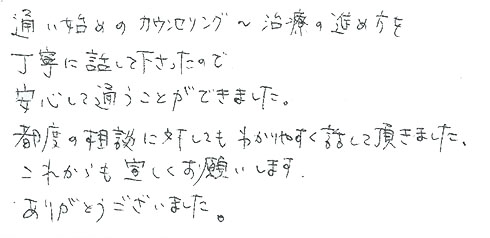 通い始めのカウンセリング～治療の進め方を
丁寧に話して下さったので
安心して通うことができました。
都度の相談に対してもわかりやすく話して頂きました。
これからも宜しくお願いします.
ありがとうございました。